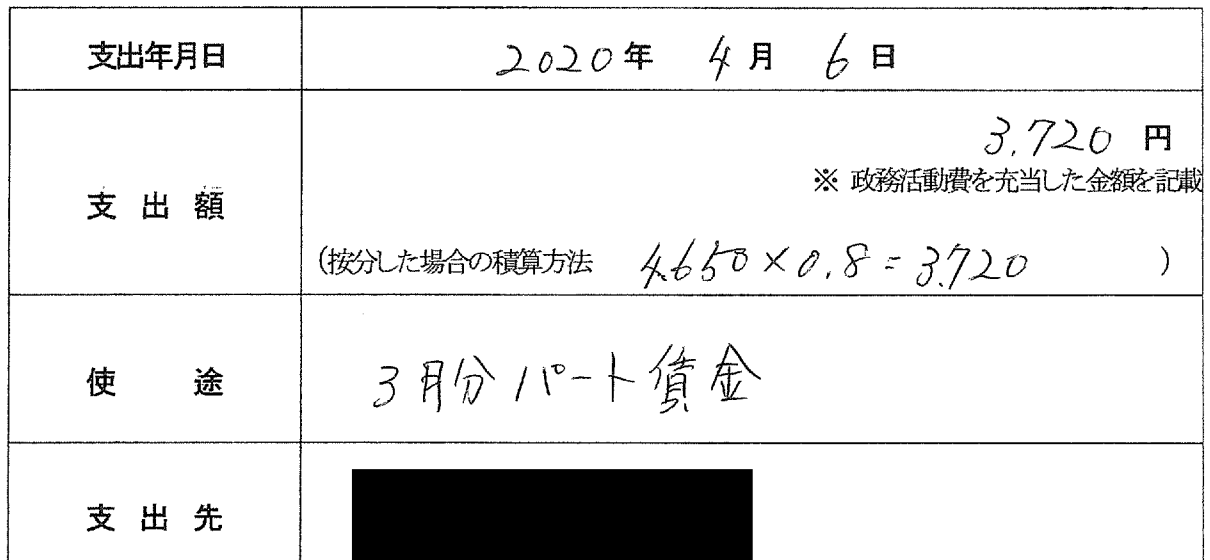 支出年月日 2020年 4月 6日
3,720 円
※ 政務活動費を充当した金額を記載
支出額
(按分した場合の積算方法 4,650×0.8=3,720 )
使途 3月分パート賃金
支出先